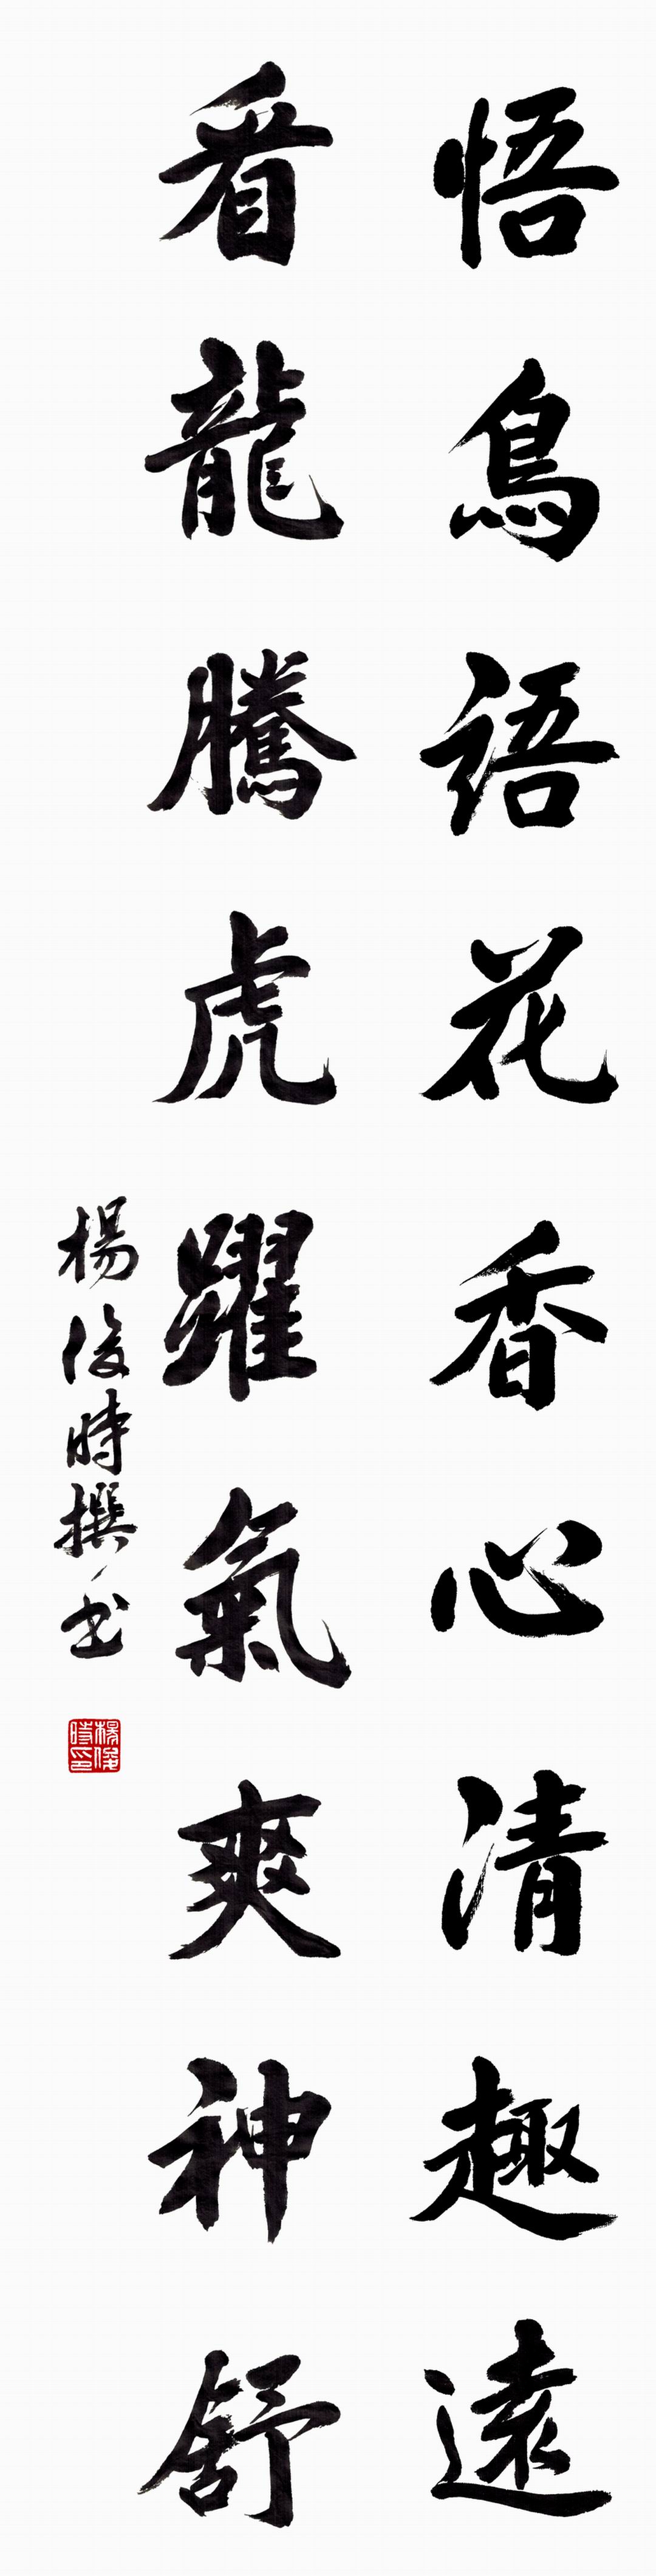 悟鳥語花香心清趣遠
看龍騰虎躍氣爽神舒
楊俊時撰书
楊俊時印